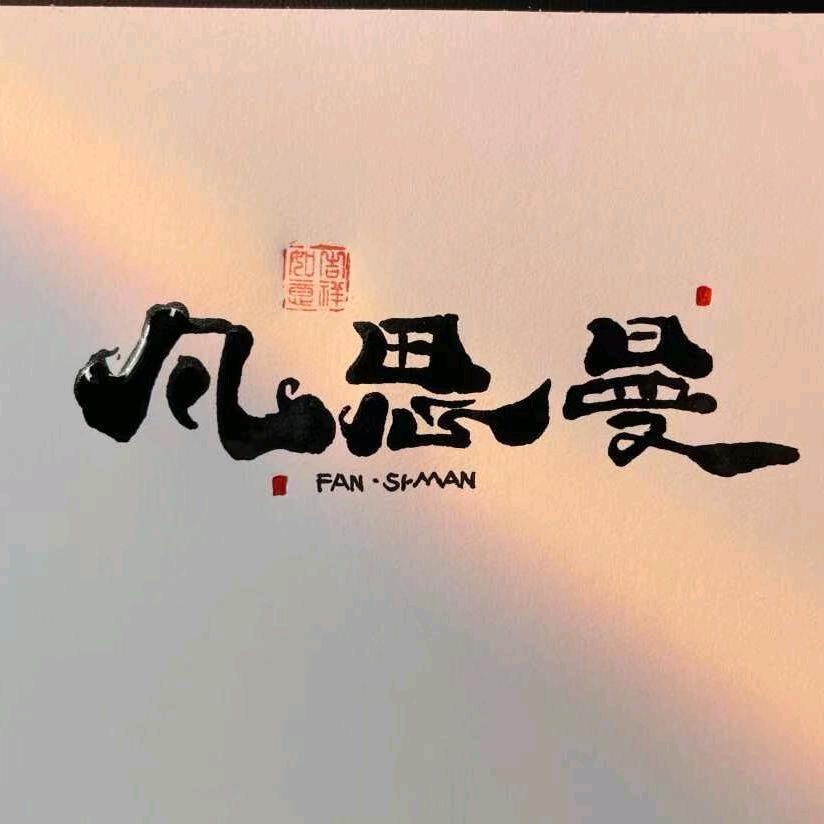 吉祥如意
凡思曼
FAN·SI-MAN